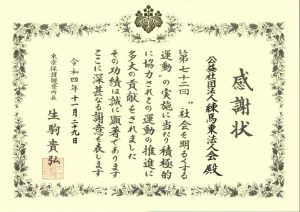 感謝状
公益社団法人練馬東法人会殿
第七十二回“社会を明るくする
運動”の実施に当たり積極的
に協力されこの運動の推進に
多大の貢献をされました
その功績は誠に顕著であります
ここに深甚なる謝意を表します
令和四年十一月二九日
東京保護観察所長
生駒貴弘